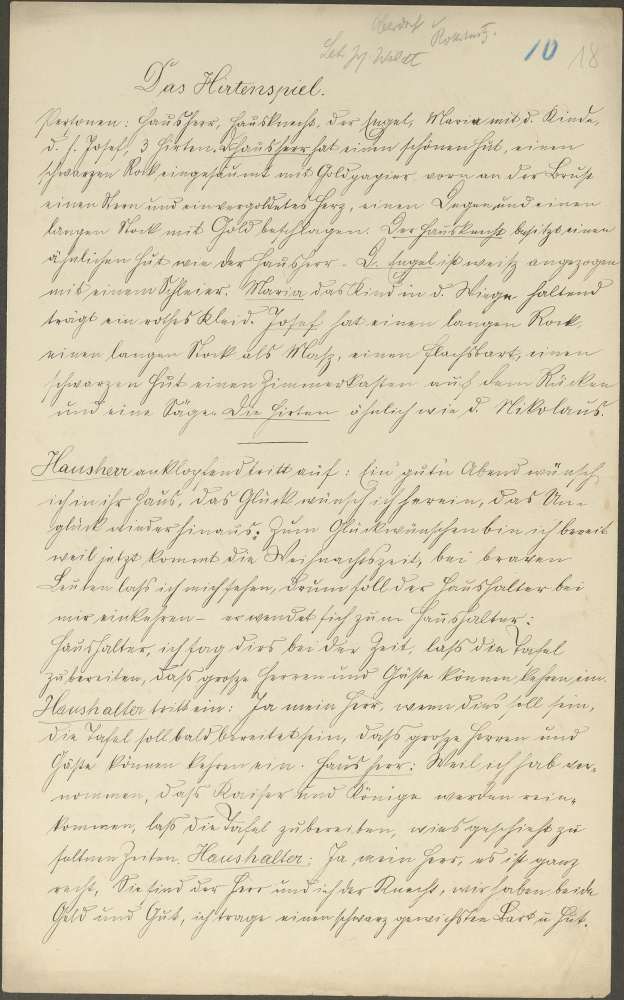 Oberdorf u.
10 18
Das Hirtenspiel.
Personen: Hausherr, Hausknecht, der Engel, Maria mit d. Kinde,
d. h. Josef, 3 Hirten. Hausherr hat einen schönen Hut, einen
schwarzen Rock eingesäumt mit Goldpapier, vorn an der Brust
einen Stern und ein vergoldetes Herz, einen Degen und einen
langen Stock mit Gold beschlagen. Der Hausknecht besitzt einen
ähnlichen Hut wie der Hausherr. D. Engel ist weiß angezogen
mit einem Schleier. Maria das Kind in d. Wiege haltend
trägt ein rothes Kleid. Josef hat einen langen Rock,
einen langen Stock als Maß, einen Flachsbart, einen
schwarzen Hut einen Zimmerkasten auf dem Rücken
und eine Säge. Die Hirten ähnlich wie d. Nikolaus.
Hausherr anklopfend tritt auf: Ein gut'n Abend wünsch
ich in ihr Haus, das Glück wünsch ich herein, das Un-
glück wieder hinaus; Zum Glückwünschen bin ich bereit
weil jetzt kommt die Weihnachtszeit, bei braven
Leuten laß ich mich sehen, drum soll der Haushalter bei
mir einkehren – er wendet sich zum Haushalter:
Haushalter, ich sag dirs bei der Zeit, laß die Tafel
zubereiten, daß große Herren und Gäste können kehren ein.
Haushalter tritt ein: Ja mein Herr, wenn dies soll sein,
die Tafel soll bald bereitet sein, daß große Herren und
Gäste können kehren ein. Hausherr: Weil ich hab ver-
nommen, daß Kaiser und Könige werden rein-
kommen, laß die Tafel zubereiten, wies geschieht zu
seltnen Zeiten. Haushalter: Ja, mein Herr, es ist ganz
recht, Sie sind der Herr und ich der Knecht, wir haben beide
Geld und Gut, ich trage einen schwarz gewichsten Bart u Hut.